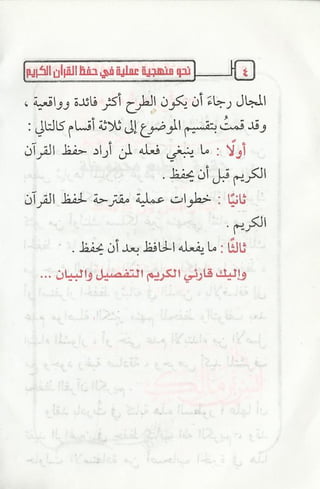 ٤ نحو منهجية عملية في حفظ القرآن الكريم
المجال رجاءً أن يكون الطرح أكثر فائدة وواقعية ،
وقد قمتُ بتقسيم الموضوع إلى ثلاثة أقسام كالتالي :
أولًا : ما ينبغي فعله لمن أراد حفظ القرآن
الكريم قبل أن يحفظ .
ثانيًا : خطوات عملية مقترحة لحفظ القرآن
الكريم .
ثالثًا : ما يفعله الحافظ بعد أن يحفظ .
وإليك قارئي الكريم التفصيل والبيان ...